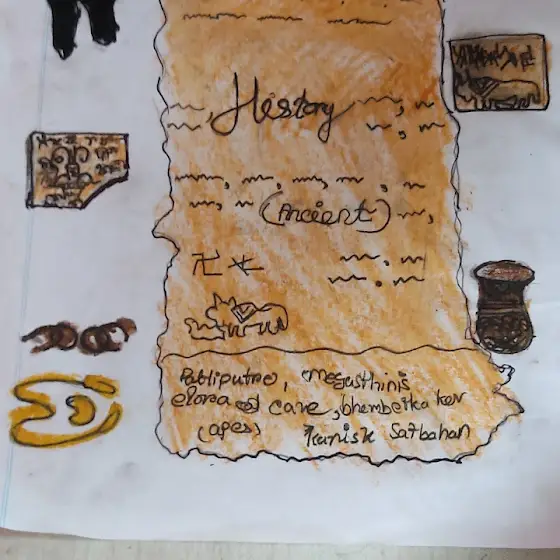 History
(Ancient)
卐
Patliputra, Megasthinis
elora cave, bhembeika
(apes) Kanisk Satbahan